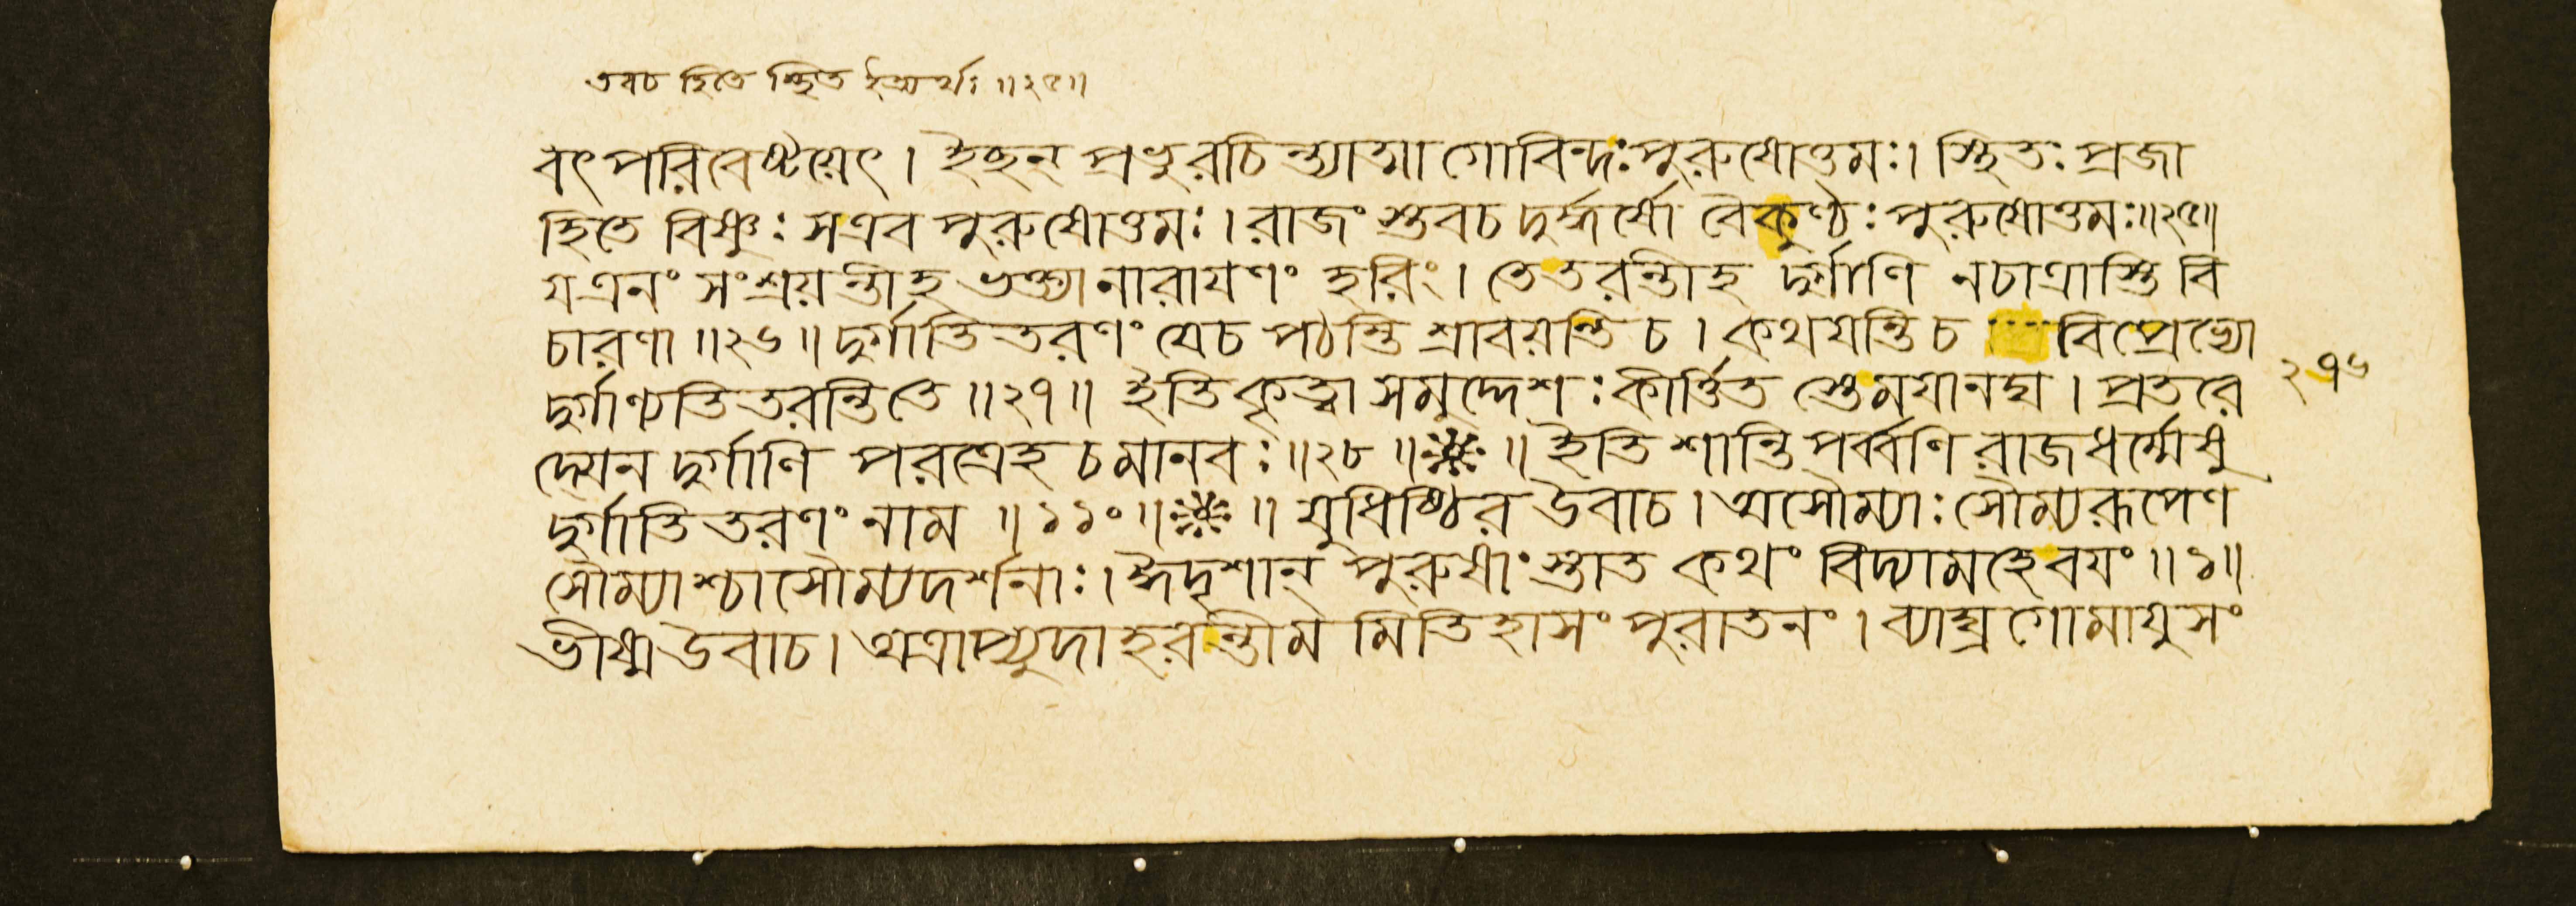 তবচ হিতে স্থিত ইত্যর্থঃ ॥২৫॥
বৎ পরিবেষ্টয়েৎ । ইছন্ প্রভুরচিন্ত্যাত্মা গোবিন্দঃ পুরুষোত্তমঃ। স্থিতঃ প্রজা
হিতে বিষ্ণুঃ স এব পুরুষোত্তমঃ । রাজং স্তবচ দুর্দ্ধর্ষো বৈকুণ্ঠঃ পুরুষোত্তমঃ॥২৫॥
য এনং সংশ্রয়ন্তীহ ভক্ত্যা নারাযণং হরিং। তে তরন্তীহ দুর্গাণি ন চাত্রাস্তি বি
চারণা ॥২৬॥ দুর্গাতিতরণং যেচ পঠন্তি শ্রাবয়ন্তি চ । কথযন্তি চ বিপ্রেভ্যো
দুর্গাণ্যতিতরন্তি তে ॥২৭॥ ইতি কৃত্বা সমুদ্দেশঃ কীর্ত্তিত স্তেময়ানঘ । প্রতরে
দ্যেন দুর্গাণি পরত্রেহ চ মানবঃ ॥২৮॥ ॥ ইতি শান্তি পর্ব্বণি রাজধর্ম্মেষু
দুর্গাতিতরণং নাম ॥১১০॥ ॥ যুধিষ্ঠির উবাচ । অসৌম্যাঃ সৌম্যরূপেণ
সৌম্যাশ্চাসৌম্যদর্শনাঃ । ঈদৃশান্ পুরুষাংস্তাত কথং বিদ্যামহে বযং ॥১॥
ভীষ্ম উবাচ । অত্রাপ্যুদাহরন্তীম মিতিহাসং পুরাতনং । ব্যাঘ্র গোমাযুসং
২৭৬